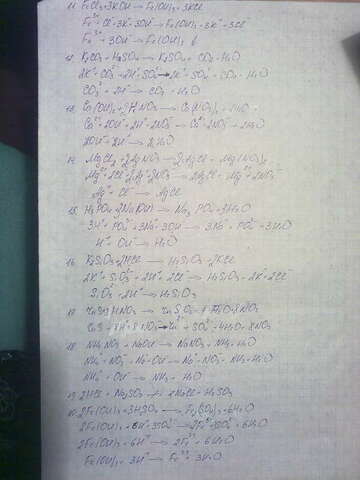 11 FeCl₃+3KOH → Fe(OH)₃+3KCl
Fe³⁺+Cl⁻+3K⁺+3OH⁻ → Fe(OH)₃+3K⁺+3Cl⁻
Fe³⁺+3OH⁻ → Fe(OH)₃ ↓
12 K₂CO₃+H₂SO₄ → K₂SO₄+CO₂+H₂O
2K⁺+CO₃²⁻+2H⁺+SO₄²⁻ → 2K⁺+SO₄²⁻+CO₂+H₂O
CO₃²⁻+2H⁺ → CO₂+H₂O
13
2OH⁻+2H⁺ → 2H₂O
14 MgCl₂+2AgNO₃ → 2AgCl+Mg(NO₃)₂
Mg²⁺+2Cl⁻+2Ag⁺+2NO₃⁻ → 2AgCl+Mg²⁺+2NO₃⁻
Ag⁺+Cl⁻ → AgCl
15 H₃PO₄+3NaOH → Na₃PO₄+3H₂O
3H⁺+PO₄³⁻+3Na⁺+3OH⁻ → 3Na⁺+PO₄³⁻+3H₂O
H⁺+OH⁻ → H₂O
16 K₂SiO₃+2HCl → H₂SiO₃+2KCl
2K⁺+SiO₃²⁻+2H⁺+2Cl⁻ → H₂SiO₃+2K⁺+2Cl⁻
SiO₃²⁻+2H⁺ → H₂SiO₃
17 ZnS+8HNO₃ → ZnSO₄+4H₂O+8NO₂
18 NH₄NO₃+NaOH → NaNO₃+NH₃+H₂O
NH₄⁺+NO₃⁻+Na⁺+OH⁻ → Na⁺+NO₃⁻+NH₃+H₂O
NH₄⁺+OH⁻ → NH₃+H₂O
19 2HCl+Na₂SO₄ 2NaCl+H₂SO₄
20 2Fe(OH)₃+3H₂SO₄ → Fe₂(SO₄)₃+6H₂O
2Fe(OH)₃+6H⁺+3SO₄²⁻ → 2Fe³⁺+3SO₄²⁻+6H₂O
2Fe(OH)₃+6H⁺ → 2Fe³⁺+6H₂O
Fe(OH)₃+3H⁺ → Fe³⁺+3H₂O